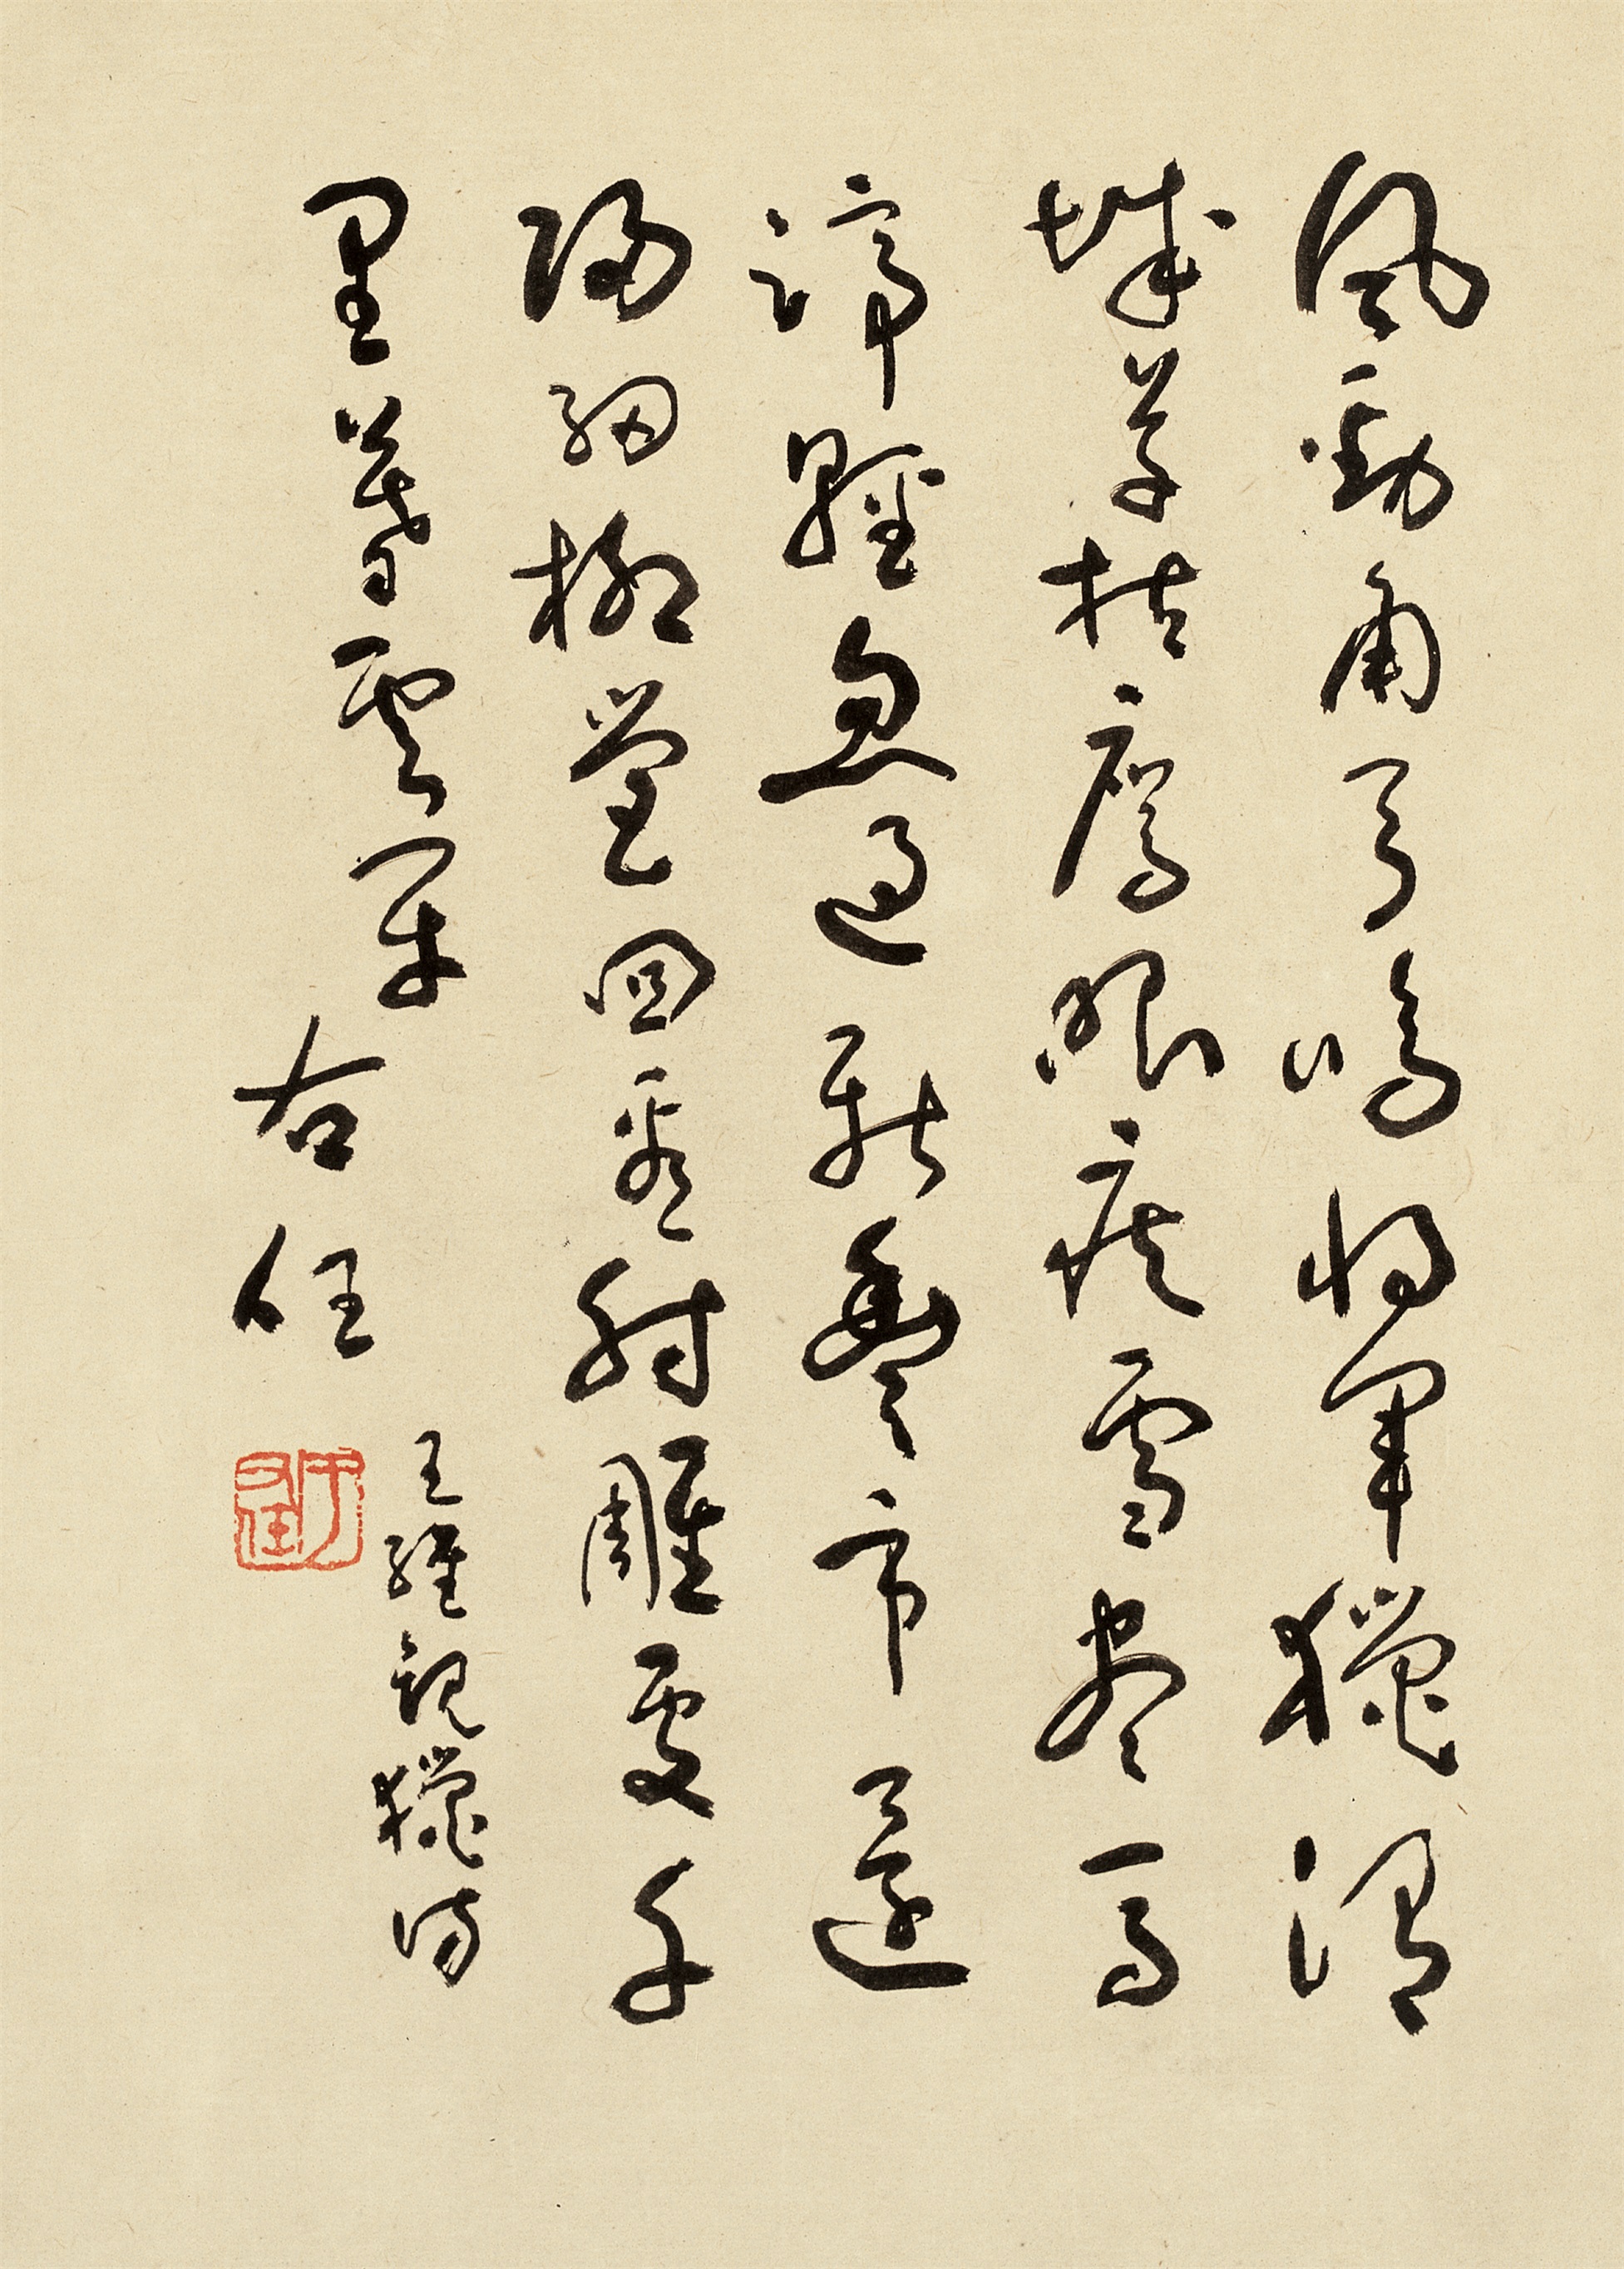 風勁角弓鳴將軍獵渭
城草枯鷹眼疾雪盡馬
蹄輕忽過新豐市還
歸細柳營回看射雕處千
里暮雲平
右任
王維觀獵詩
于右任